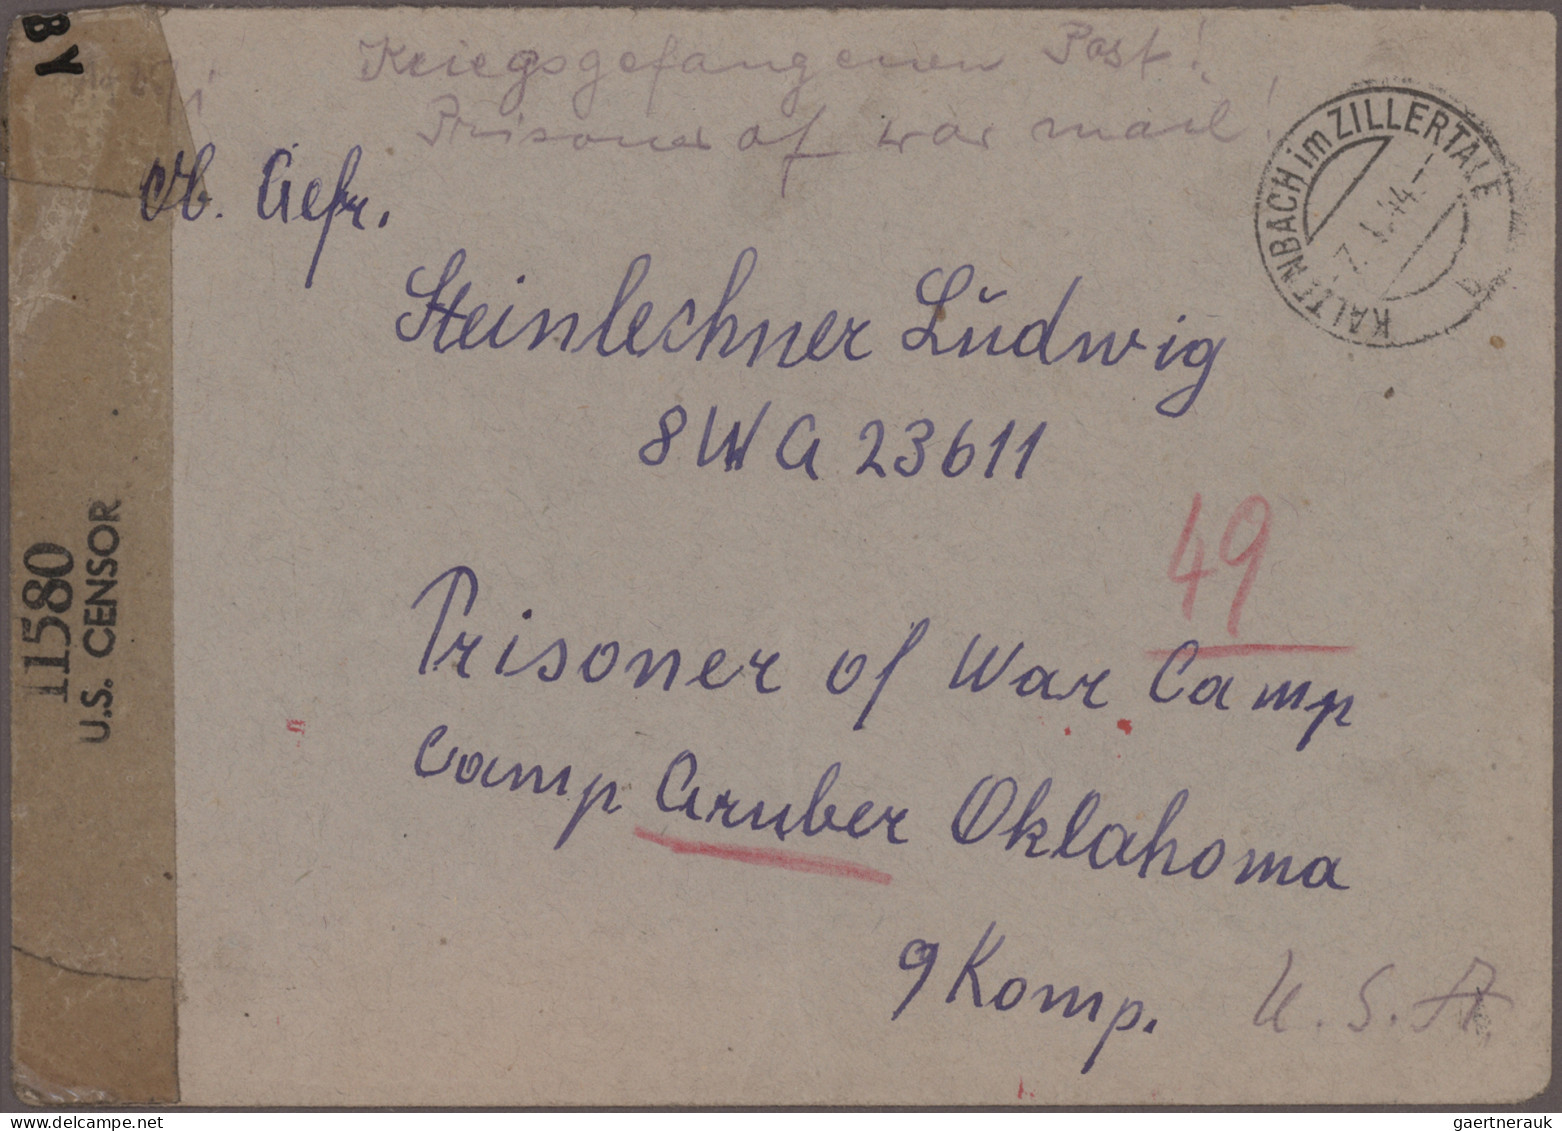 Kriegsgefangenen Post!
Prisoner of war mail!
BY
Ob. Gefr.
Steinlechner Ludwig
8WG 23611
KALTENBACH im ZILLERTALE
49
Prisoner of War Camp
Camp Gruber Oklahoma
9 Komp. U.S.A
11580
U.S. CENSOR
gaertnerauk